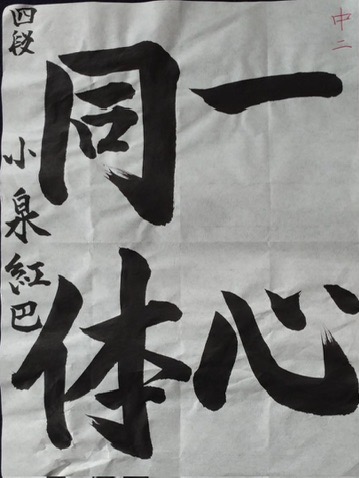 中二
一心
同体
四段 小泉紅巴